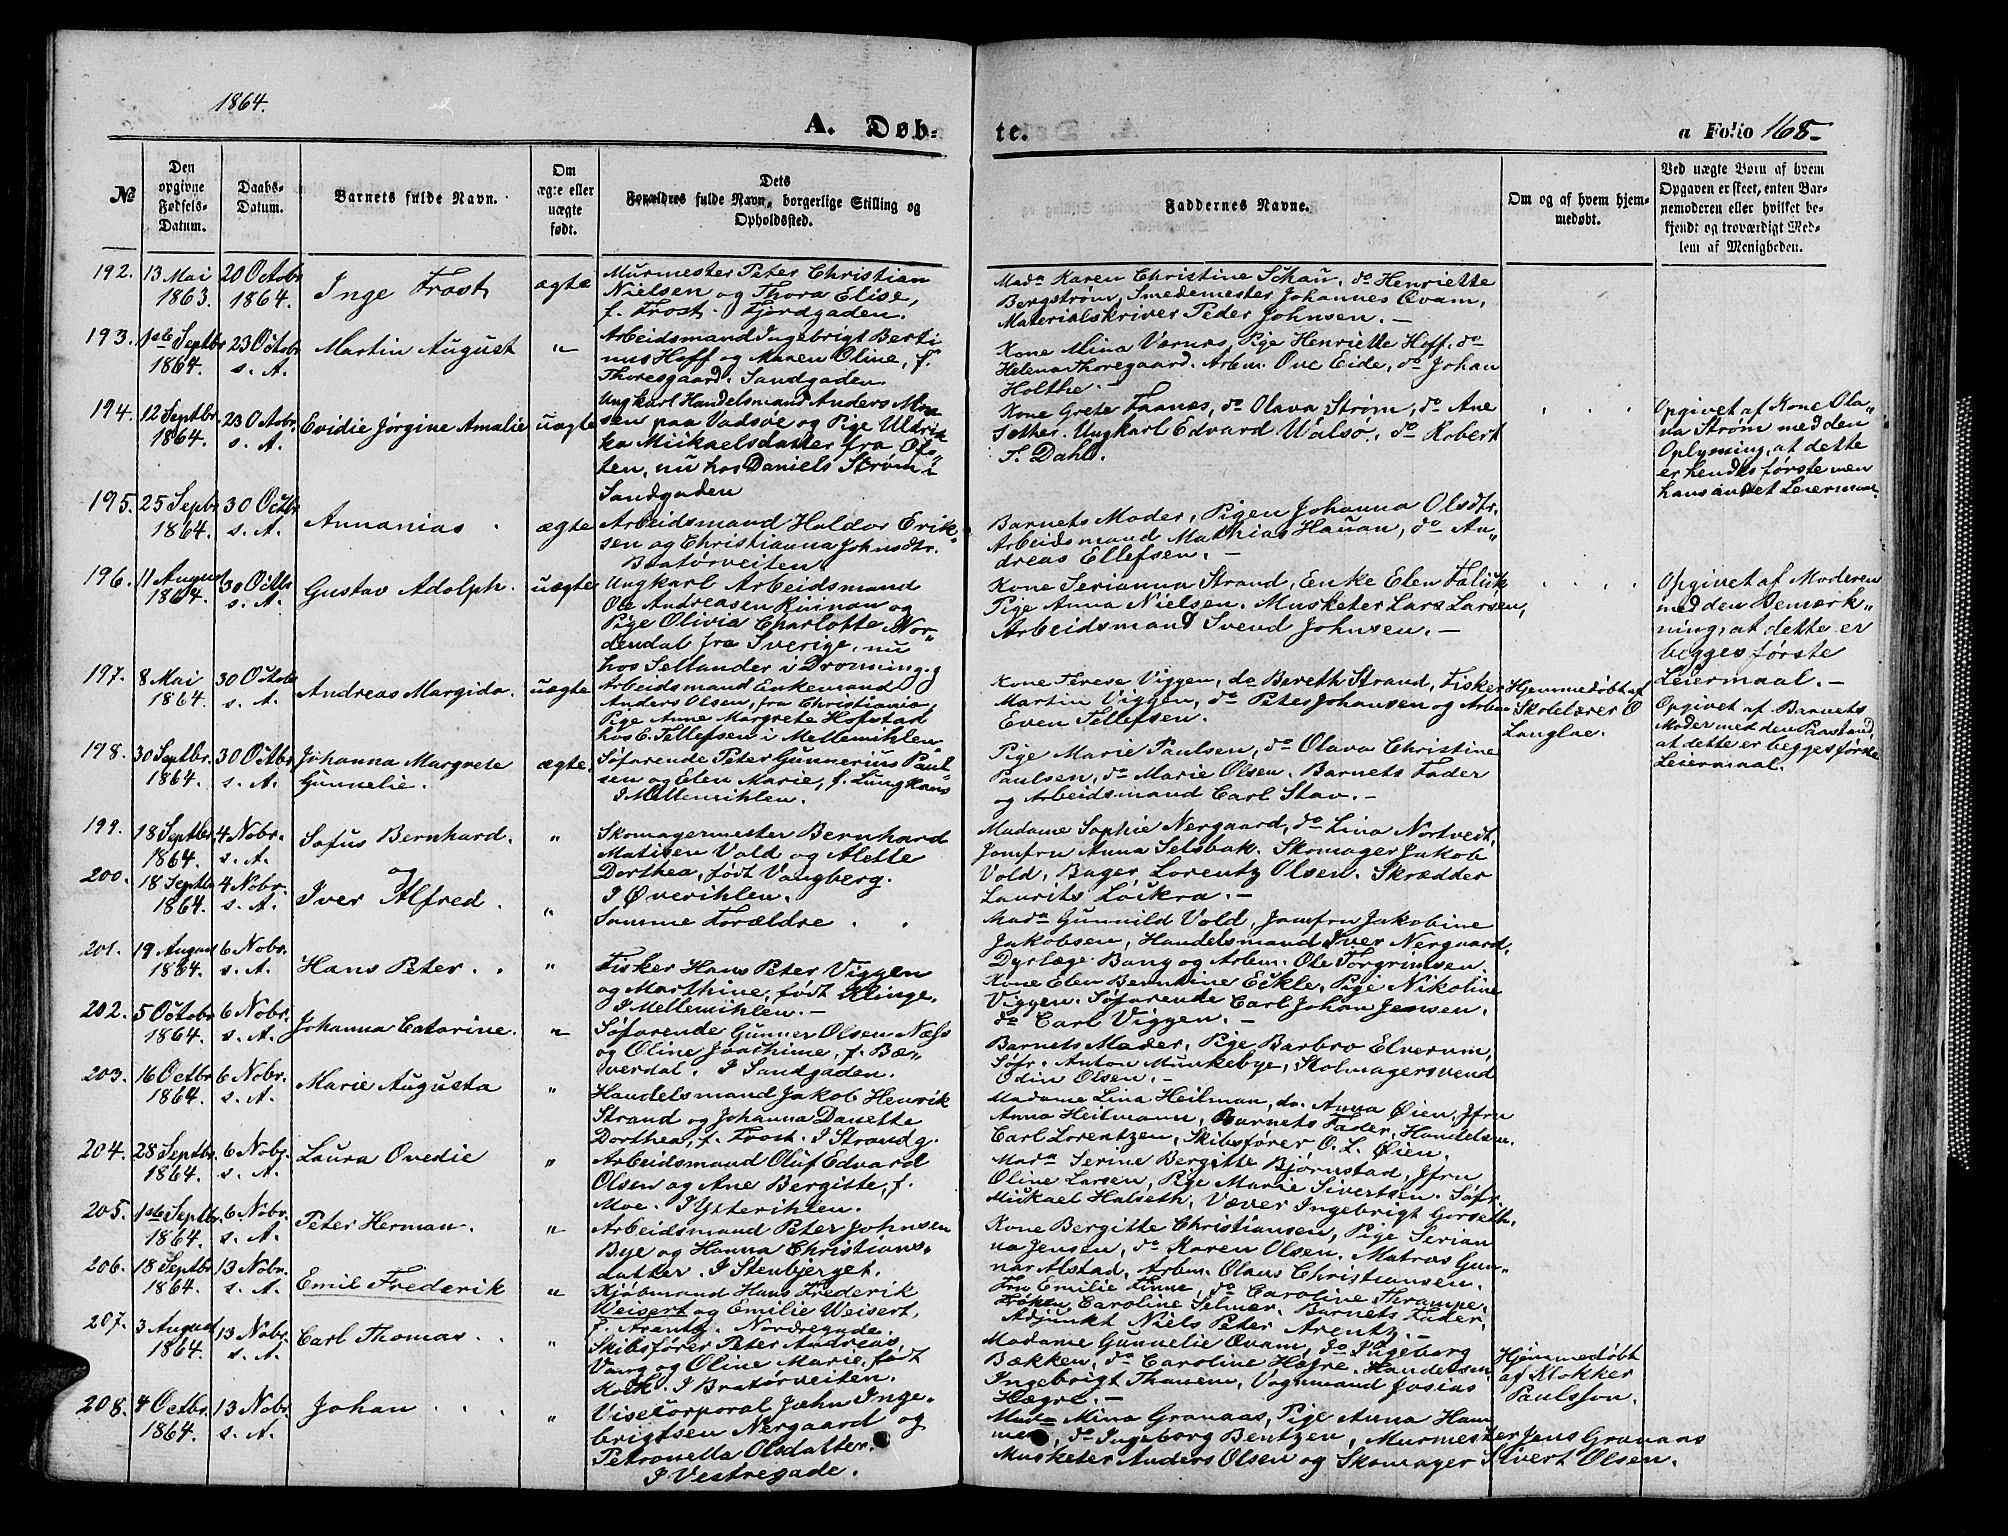 1864.
A. Døb-
te.
a Folio 168-
№
Den opgivne Fødsels-Datum.
Daabs-Datum.
Barnets fulde Navn.
Om ægte eller uægte født.
Dets Forældres fulde Navn, borgerlige Stilling og Opholdssted.
Faddernes Navne.
Om og af hvem hjemmedøbt.
Ved uægte Børn af hvem Opgaven er skeet, enten Barnemoderen eller hvilket bekjendt og troværdigt Medlem af Menigheden.
192. 13 Mai 1863. 20 Octobr 1864. Inge Frost ægte
Murmester Peter Christian
Nielsen og Thora Elise,
f. Frost. Fjordgaden.
Mada Karen Christine Schau, do Henriette
Bergstrøm, Smedemester Johannes Qvam,
Materialskriver Peder Johnsen. —
193. 1ste Septbr 1864. 23 Octobr s. A. Martin August "
Arbeidsmand Ingebrigt Berti
nus Hoff og Maren Oline, f.
Thoresgaard. Sandgaden.
Kone Mina Værnes, Pige Henriette Hoff. do
Helena Thoregaard. Arbm. Ove Eide, do Johan
Holthe. —
194. 12 Septbr. 1864. 23 Octobr. s. A. Evidie Jørgine Amalie uægte
Ungkarl Handelsmand Anders Mon
sen paa Vadsøe og Pige Uldrik
ka Mickaelsdatter fra Ofo
ten, nu hos Daniels Strøm i
Sandgaden
Kone Grete Faanes, do Olava Strøm, do Ane
Sether. Ungkarl Edvard Walsø. do Robert
T. Dahl.
Opgivet af Kone Ola„
va Strøm med den
Oplysning, at dette
er hendes første men
hans andet Leiermaal.
195. 25 Sepbr. 1864. 30 Octbr. s. A. Annanias ægte
Arbeidsmand Haldor Erik„
sen og Christianna Johnsdtr.
Bratørveiten
Barnets Moder, Pigen Johanna Olsdtr.
Arbeidsmand Mathias Hauan, do An„
dreas Ellefsen. —
196. 11 August 1864. 30 Octbr s. A. Gustav Adolph. uægte
Ungkarl Arbeidsmand
Ole Andreasen Rinnan og
Pige Olivia Charlotte Nor„
dendal fra Sverige, nu
hos Sellander i Dronning.g
Kone Serianna Strand, Enke Elen Falick,
Pige Anna Nielsen. Musketer Lars Larsen,
Arbeidsmand Svend Johnsen. —
Opgivet af Moderen
med den Bemærk„
ning, at dette er
begges første
Leiermaal. —
197. 8 Mai 1864. 30 Octobr s. A. Andreas Margido. uægte
Arbeidsmand Enkemand
Anders Olsen, fra Christiania,
Pige Anne Margrete Hofstad
hos E. Tellefsen i Mellemihlen
Kone Terese Viggen, do Bereth Strand, Fisker
Martin Viggen, do Peter Johansen og Arbm
Even Tellefsen.
Hjemmedøbt af
Skolelærer O
Langlae.
Opgivet af Barnets
Moder med den Paastand,
at dette er begges første
Leiermaal.
198. 30 Septbr. 1864. 30 Octbr s. A. Johanna Margrete Gunnelie. ægte.
Søfarende Peter Gunnerius Paul„
sen og Elen Marie, f. Lunghans
I Mellemihlen.
Pige Marie Paulsen, do Olava Christine
Paulsen, do Marie Olsen. Barnets Fader
og Arbeidsmand Carl Stav. —
199. 18 Septbr. 1864. 4 Nobr. s. A. Sofus Bernhard. "
Skomagermester Bernhard
Matisen Vold og Alette
Dorthea, født Vangberg.
I Øverihlen.
Madame Sophie Nergaard, do Lina Nortvedt,
Jomfru Anna Selsbak. Skomager Jakob
Vold, Bager Lorentz Olsen. Skrædder
Laurits Løikra. —
200. 18 Septbr 1864. 4 Nobr. s. A. Iver Alfred. "
Samme Forældre . .
Mada Gunnild Vold, Jomfru Jakobine
Jakobsen, Handelsmand Iver Nergaard,
Dyrlæge Bang og Arbm. Ole Torgrimsen.
201. 19 August 1864. 6 Nobr. s. A. Hans Peter. . "
Fisker Hans Peter Viggen
og Marthine, født Klinge.
I Mellemihlen. —
Kone Elen Berntine Eckle, Pige Nikoline
Viggen. Søfarende Carl Johan Jensen.
do Carl Viggen. —
202. 5 Octobr 1864. 6 Nobr. s. A. Johanna Catarine. "
Søfarende Gunner Olsen Næss
og Oline Joachime, f. Bæ„
verdal. I Sandgaden.
Barnets Moder, Pige Barbro Elverum,
Søfr. Anton Munkebye, Skomagersvend
Odin Olsen. —
203. 16 Octbr 1864. 6 Nobr. s. A. Marie Augusta "
Handelsmand Jakob Henrik
Strand og Johanna Danette
Dorthea, f. Frost. I Strandg.
Madame Lina Heilman, do. Anna Øien, Jfru
Anna Heilmann, Barnets Fader, Handelsm.
Carl Lorentzen, Skibsfører O. L. Øien.
204. 28 Septbr. 1864. 6 Nobr. s. A. Laura Ovedie "
Arbeidsmand Oluf Edvard
Olsen og Ane Bergitte, f.
Moe. I Ytterihlen.
Mada Serine Bergitte Bjørnstad, Jfru
Oline Larsen, Pige Marie Sivertsen. Søfr.
Mickael Halseth, Væver Ingebrigt Gorseth.
205. 1ste Septbr. 1864. 6 Nobr. s. A. Peter Herman. "
Arbeidsmand Peter Johnsen
Bye og Hanna Christians„
datter. I Stenbjerget.
Kone Bergitte Christiansen, Pige Serian
na Jensen, do Karen Olsen. Matros Gun„
nar Alstad, Arbm. Olaus Christiansen.
206. 18 Septbr 1864. 13 Nobr. s. A. Emil Frederik "
Kjøbmand Hans Frederik
Weisert og Emilie Weisert,
f. Arentz. Nordregade.
Fru Emilie Finne, do Caroline Thrampe.
Frøken Caroline Selmer. Barnets Fader.
Adjunkt Niels Peter Arentz. —
207. 3 August 1864. 13 Nobr. s. A. Carl Thomas . . "
Skibsfører Peter Andreas
Vang og Oline Marie, født
Koch. I Bratørveiten.
Madame Gunnelie Qvam, do Ingeborg
Bækken, do Caroline Høyre. Handelsm.
Ingebrigt Thanem, Vognmand Josias
Hægre. —
Hjemmedøbt
af Klokker
Paulsson.
208. 4 Octbr. 1864. 13 Nobr. s. A. Johan . . . "
Visecorporal John Inge„
brigtsen Nergaard og
Petronella Olsdatter.
I Vestregade.
Mada Mina Granaas, Pige Anna Ham
mer, do Ingeborg Bentzen, Murmester Jens Granaas
Musketer Anders Olsen og Skomager Sivert Olsen.